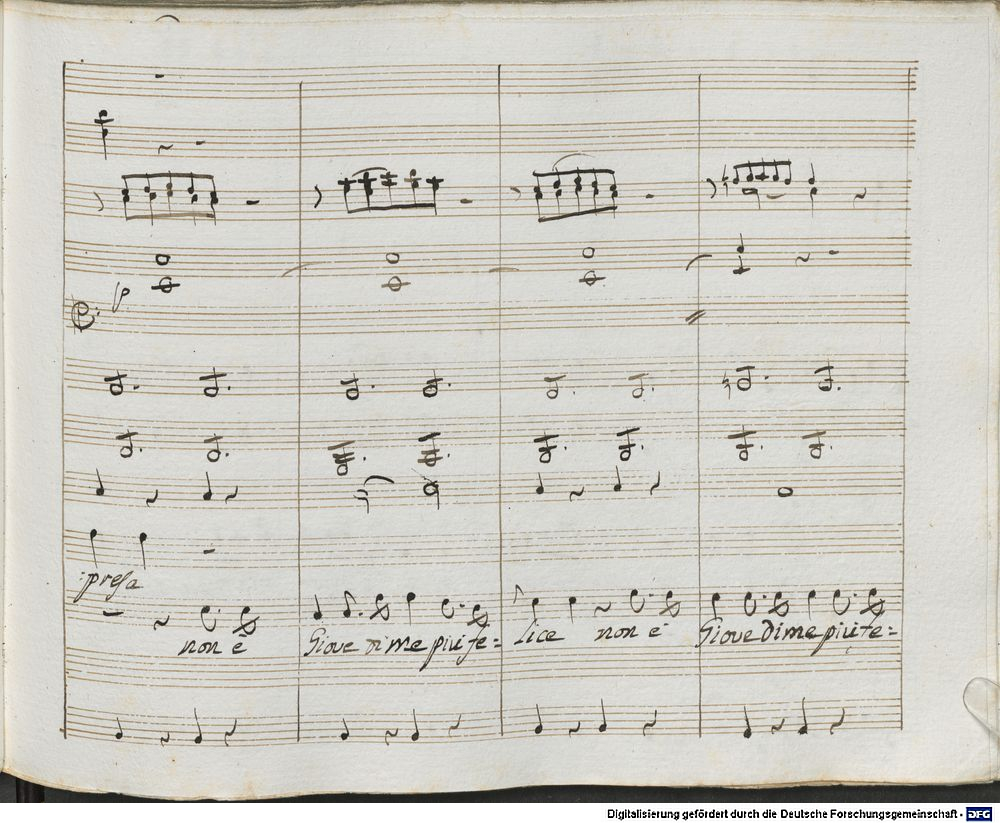 :presa
non è Giove di me piu fe= lice non è Giove di me piu fe=
Digitalisierung gefördert durch die Deutsche Forschungsgemeinschaft - DFG